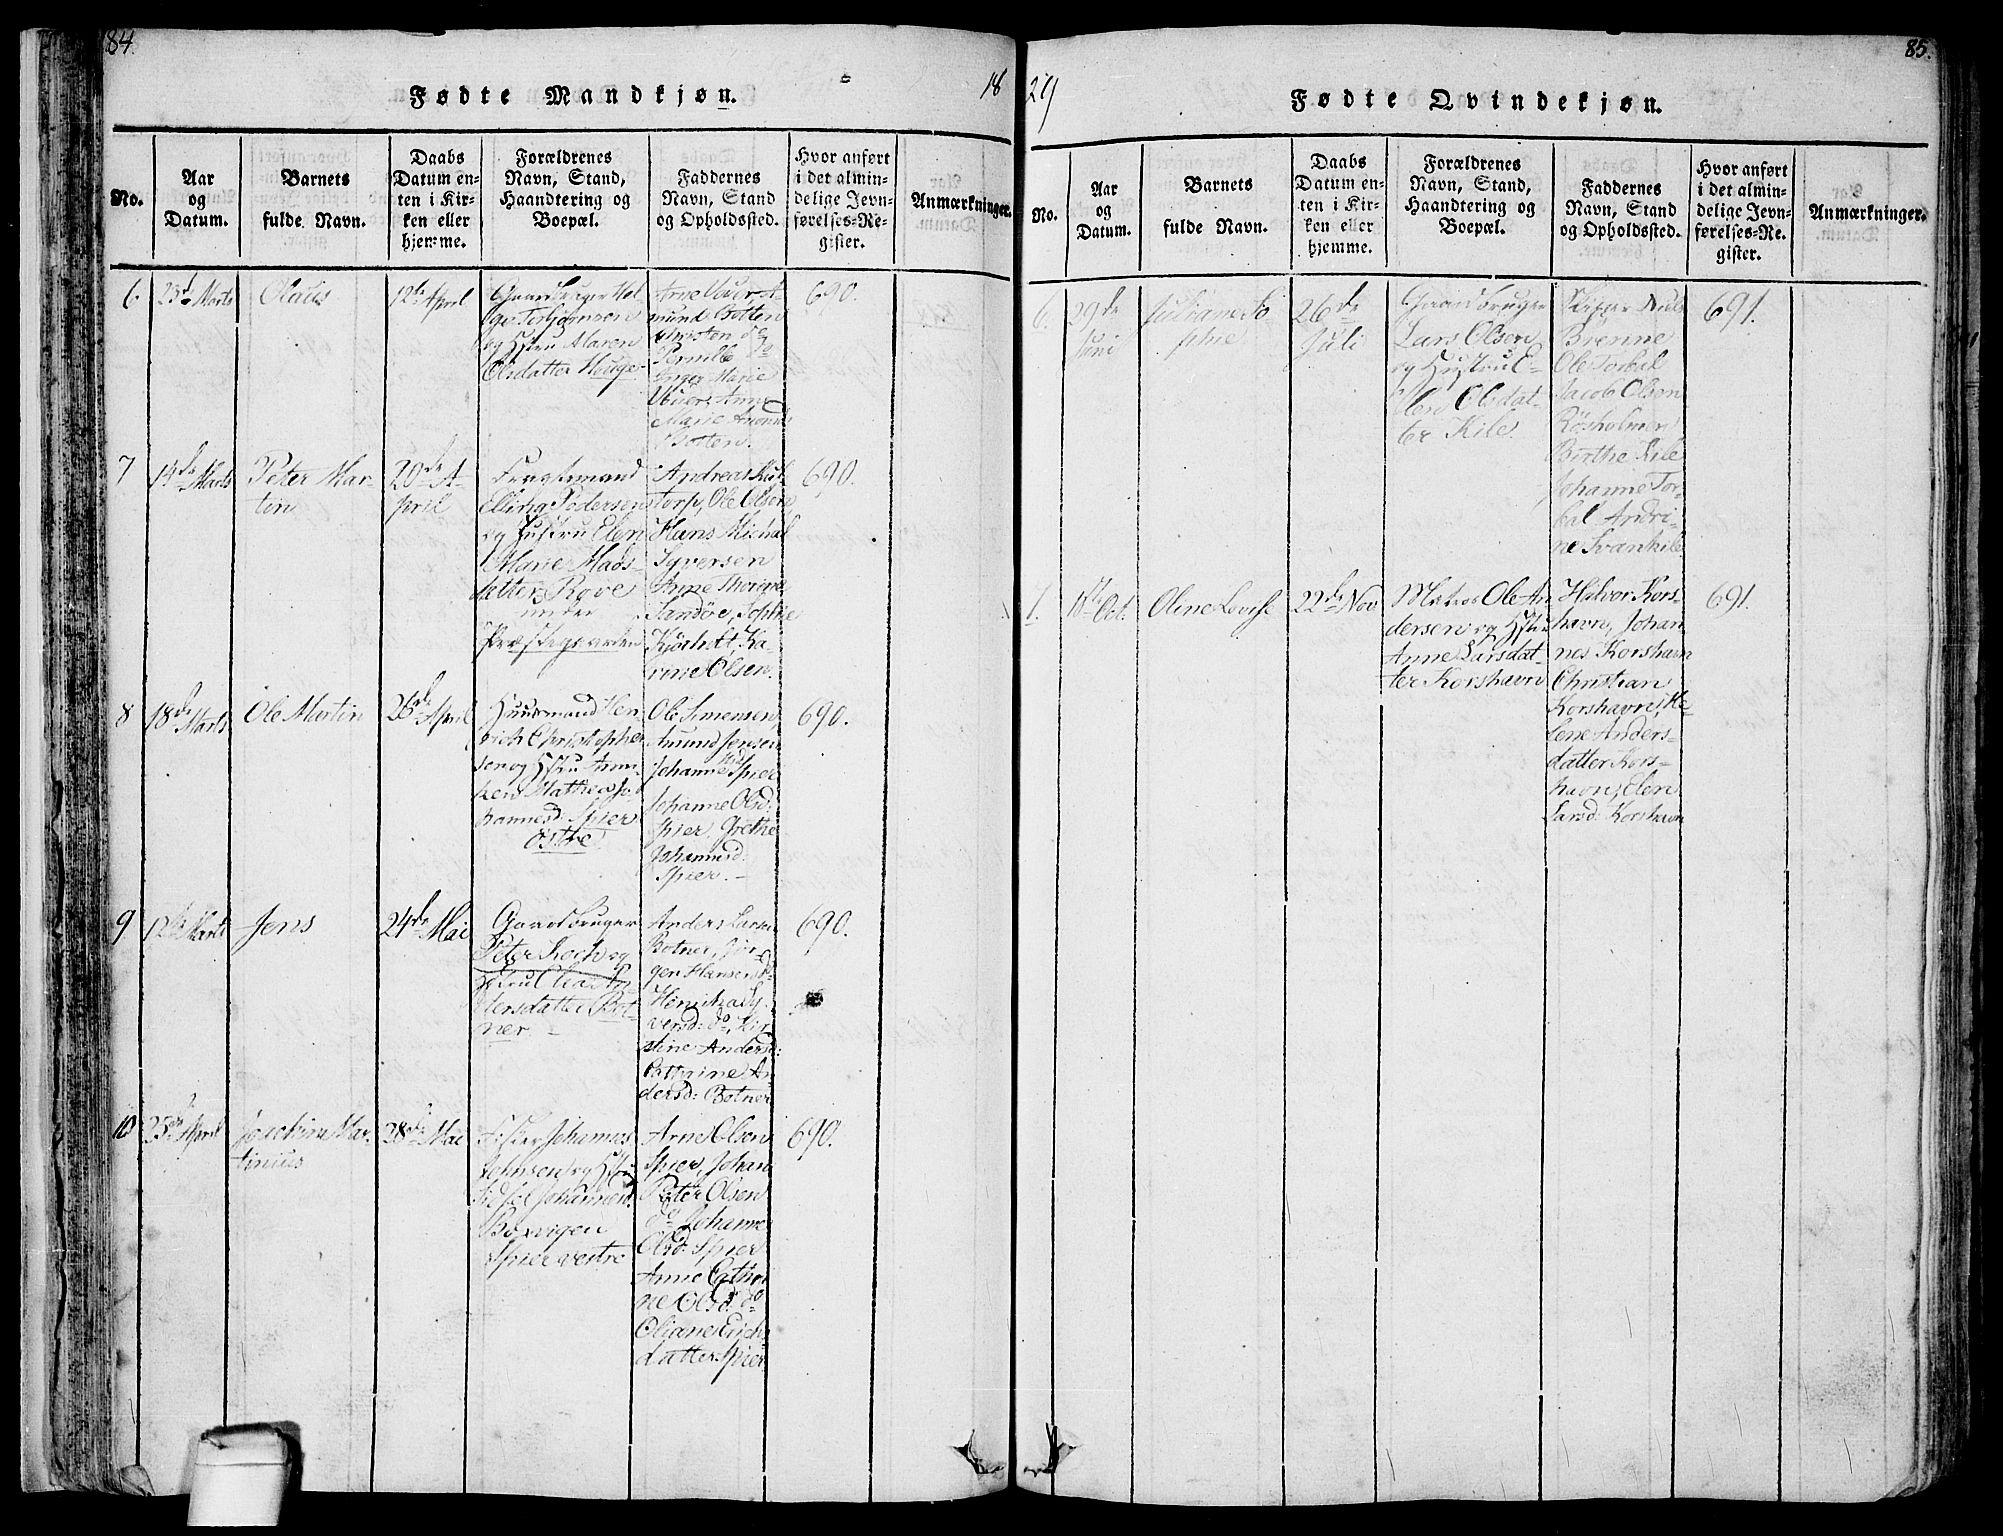 84.
Fødte Mandkjøn.
18
No.
Aar
og
Datum.
Barnets
fulde Navn.
Daabs
Datum en-
ten i Kir-
ken eller
hjemme.
Forældrenes
Navn, Stand,
Haandtering og
Boepæl.
Faddernes
Navn, Stand
og Opholdssted.
Hvor anført
i det almin-
delige Jevn-
førelses-Re-
gister.
Anmærkninger.
6
23de Marts
Olaus
12te April
Gaardbruger Hel-
ge Torbjørnsen
og Hstru Maren
Olsdatter Hauge
Arne
mund Botten
Christen do
Pernille do
Inger Marie
Anne
Marie Amund
Botten.
690.
7
14de Marts
Peter Mar-
tin
20de A-
pril
Fragtemand
Elling Pedersen
og Hustru Elen
Marie Mads-
datter Rove
under
Præstegaarden
Andreas
torp, Ole Olsen
Hans Michal
Syversen
Anne Thorine
Sandøe, Sophie
Ka-
rine Olsen.
690.
8
18de Marts
Ole Martin
26de April
Huusmand Hen-
rich Christopher-
sen og Hstru Ann-
ken Mathea Jo-
hannesd: Spier
østre
Ole Simensen
Amund Jensen
Johanne Spier
Johanne Olsd:
Spier, Grethe
Johannesd:
Spier. -
690.
9
12te Marts
Jens
24de Mai
Gaardbruger
Peter Koch og
Hstru Clea An-
dersdatter Bot-
ner -
Anders Larsen
Botner, Jør-
gen Hansen do
Hinricha Sy-
versd: do, Kir-
stine Andersd:
Cathrine An-
dersd: Botner
690.
10
25de April
Joachim Mar-
tinius
28de Mai
Fisker Johannes
Jehnsen og Hstru
Sidsel Johannesd.
Boxvigen
Spier vestre
Arne Olsen
Spier, Johan
Peter Olsen
do Johanne
Olsd: Spier
Anne Cathri-
ne Olsd. do
Oliane Erich-
datter Spier
690.
85.
29
Fødte Qvindekjøn.
No.
Aar
og
Datum.
Barnets
fulde Navn.
Daabs
Datum en-
ten i Kir-
ken eller
hjemme.
Forældrenes
Navn, Stand,
Haandtering og
Boepæl.
Faddernes
Navn, Stand
og Opholdssted.
Hvor anført
i det almin-
delige Jevn-
førelses-Re-
gister.
Anmærkninger.
6.
29de
Juni
Juliane So-
phie
26de
Juli
Gaardbruger
Lars Olsen
og Hustru E-
len Olsdat-
ter Kile
Skipper Niels
Brenne
Ole Torbal
Jacob Olsen
Røsholmen
Birthe Kile
Johanne Tor-
bal Andri-
ne Svankile
691.
7.
18de Oct.
Oline Lovise
22de Nov
Matros Ole An
dersen og Hstru
Anne Larsdat-
ter Korshavn
Halvor Kors-
havn, Johan-
nes Korshavn
Christian
Korshavn, He-
lene Anders-
datter Kors-
havn, Elen
Larsd: Korshavn
691.